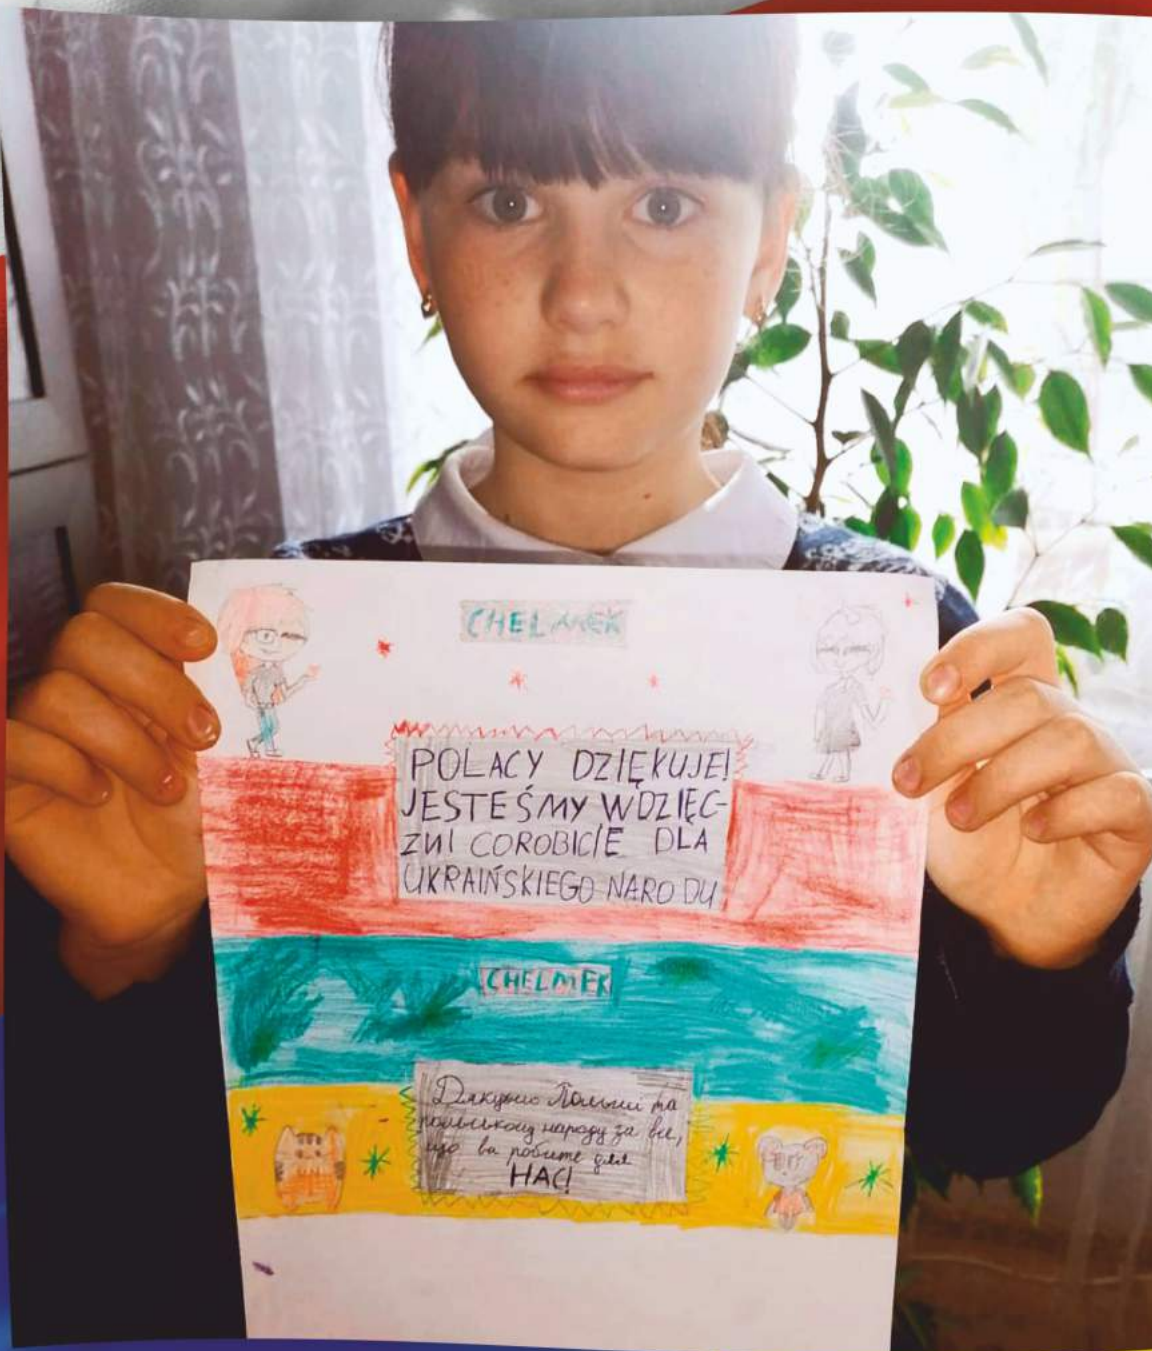 CHELMEK
POLACY DZIĘKUJE!
JESTEŚMY WDZIĘC-
ZNI COROBICIE DLA
UKRAIŃSKIEGO NARODU
CHELMEK
Дякуємо Польші та
польському народу за все,
що ви робите для
НАС!